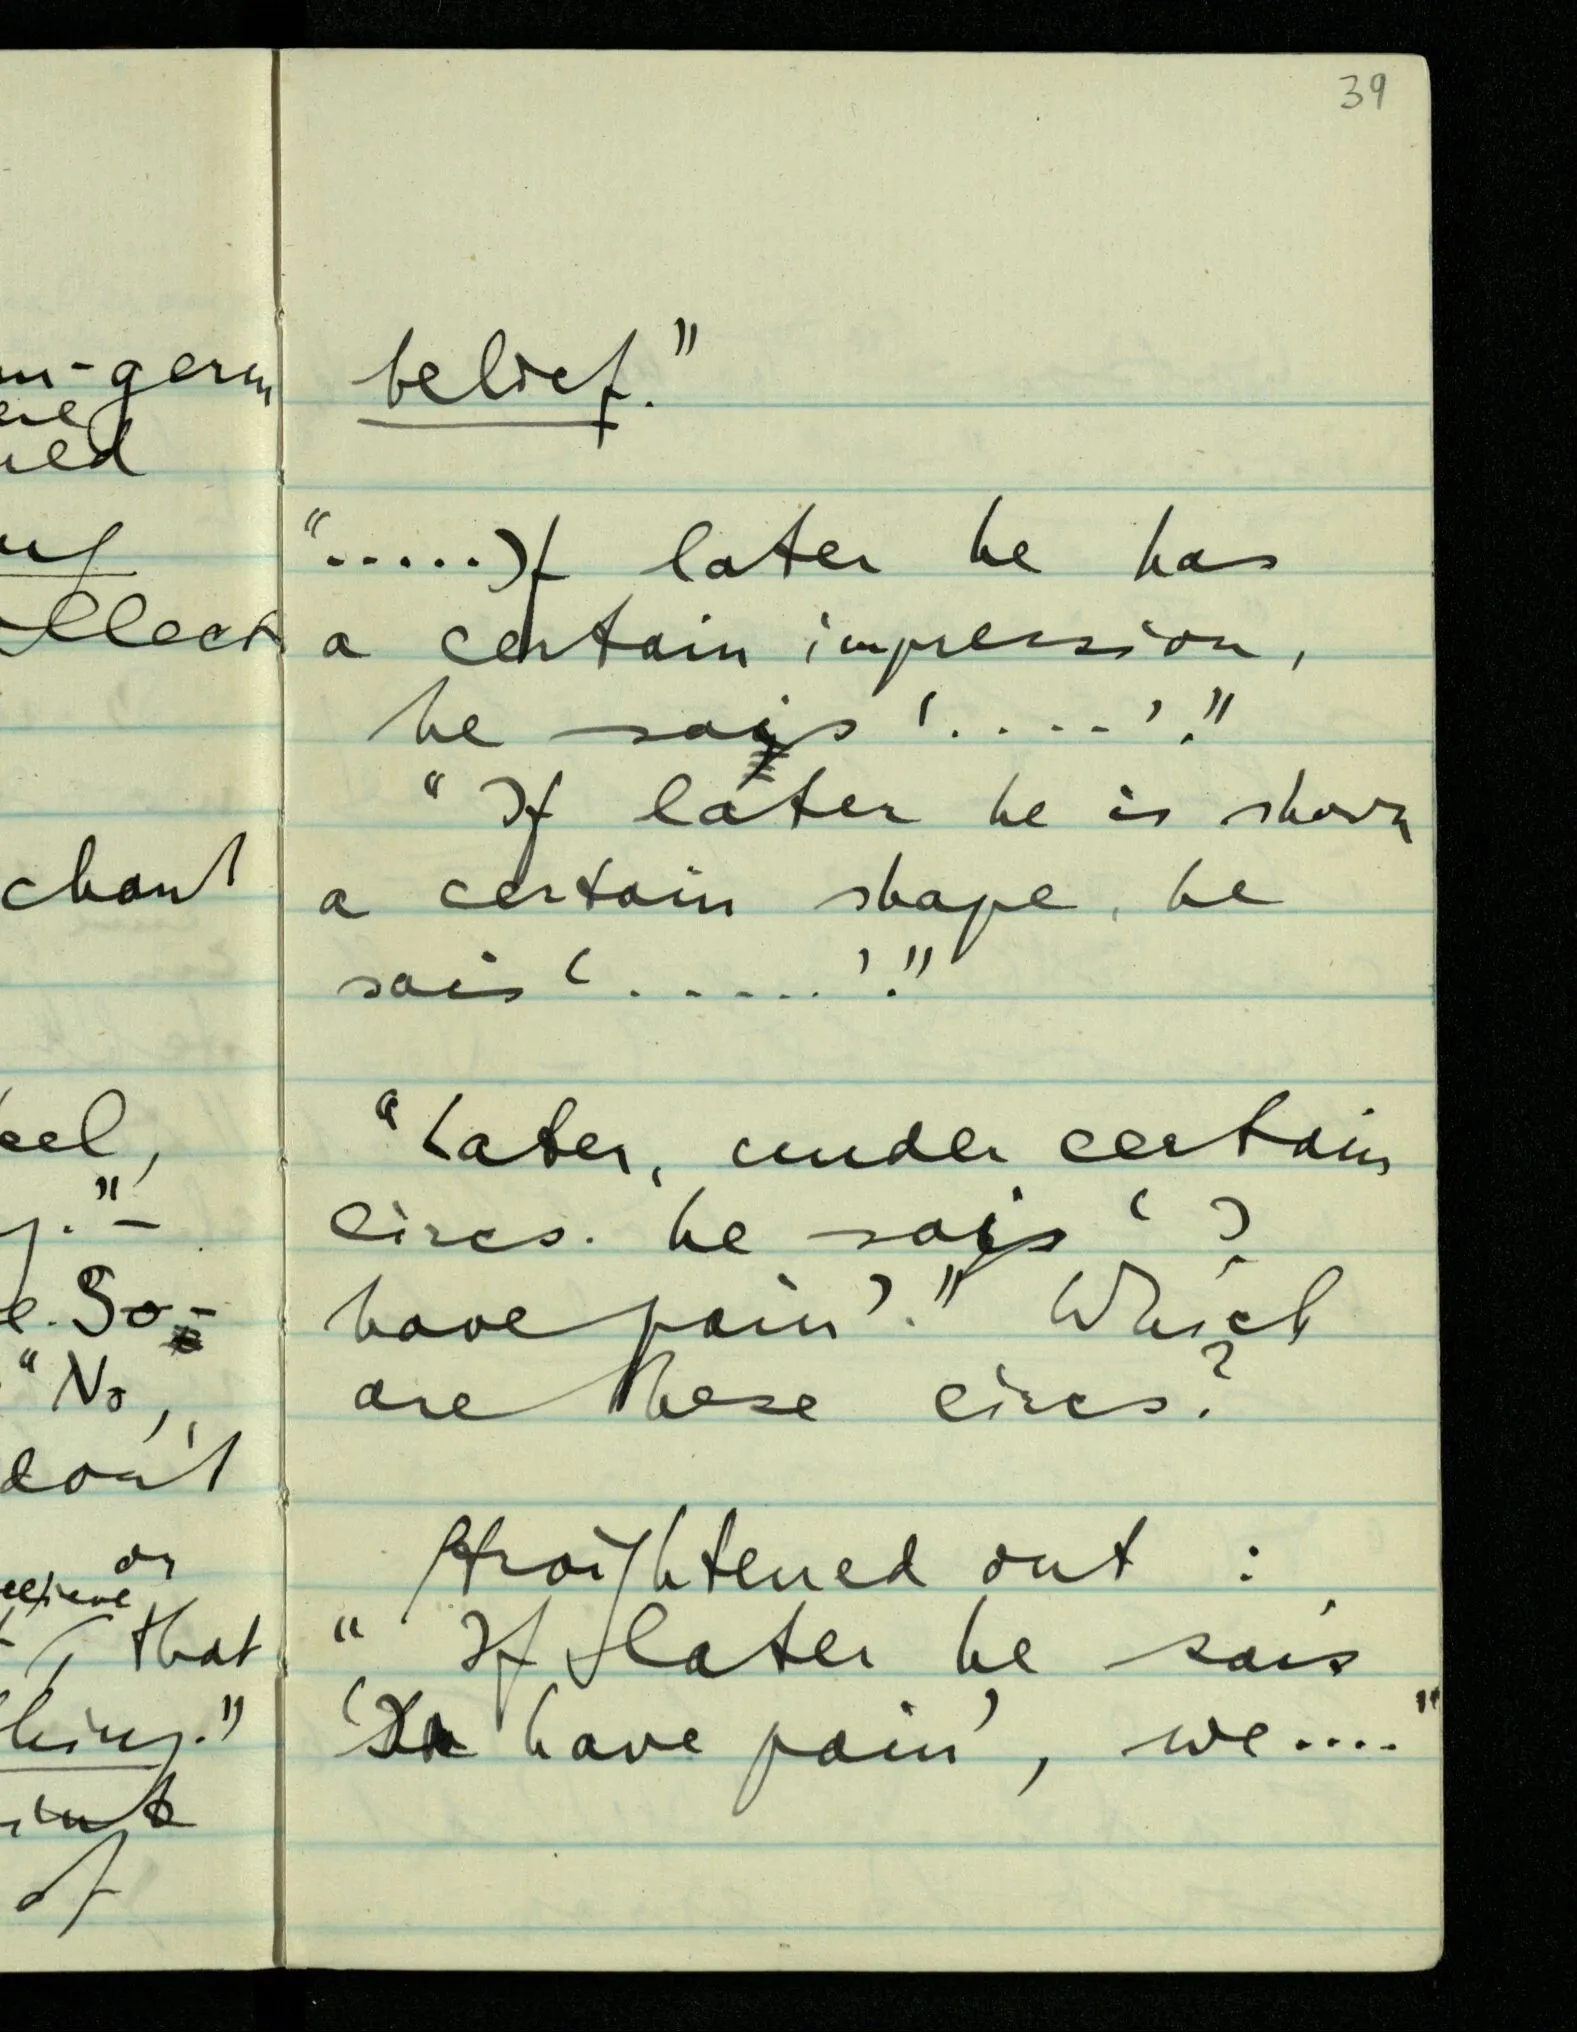 39
belief."
".....If later he has
a certain impression,
he says '.....'."
"If later he is shown
a certain shape, he
sais '......'."
"Later, under certain
circs. he says 'I
have pain'." Which
are these circs.?
Straightened out :
" If later he sais
'I have pain', we ...."
ellect
chant
eel,
So-
"No,
don't
or
that
of